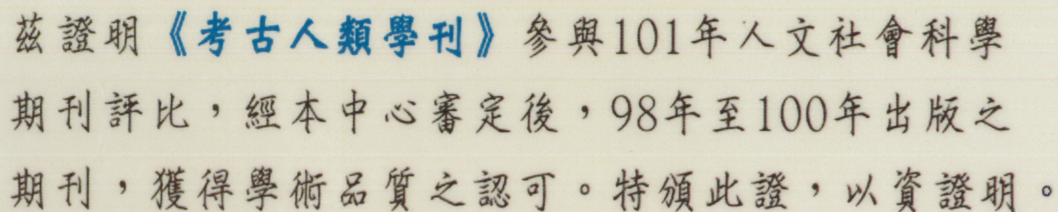 茲證明《考古人類學刊》參與101年人文社會科學
期刊評比，經本中心審定後，98年至100年出版之
期刊，獲得學術品質之認可。特頒此證，以資證明。